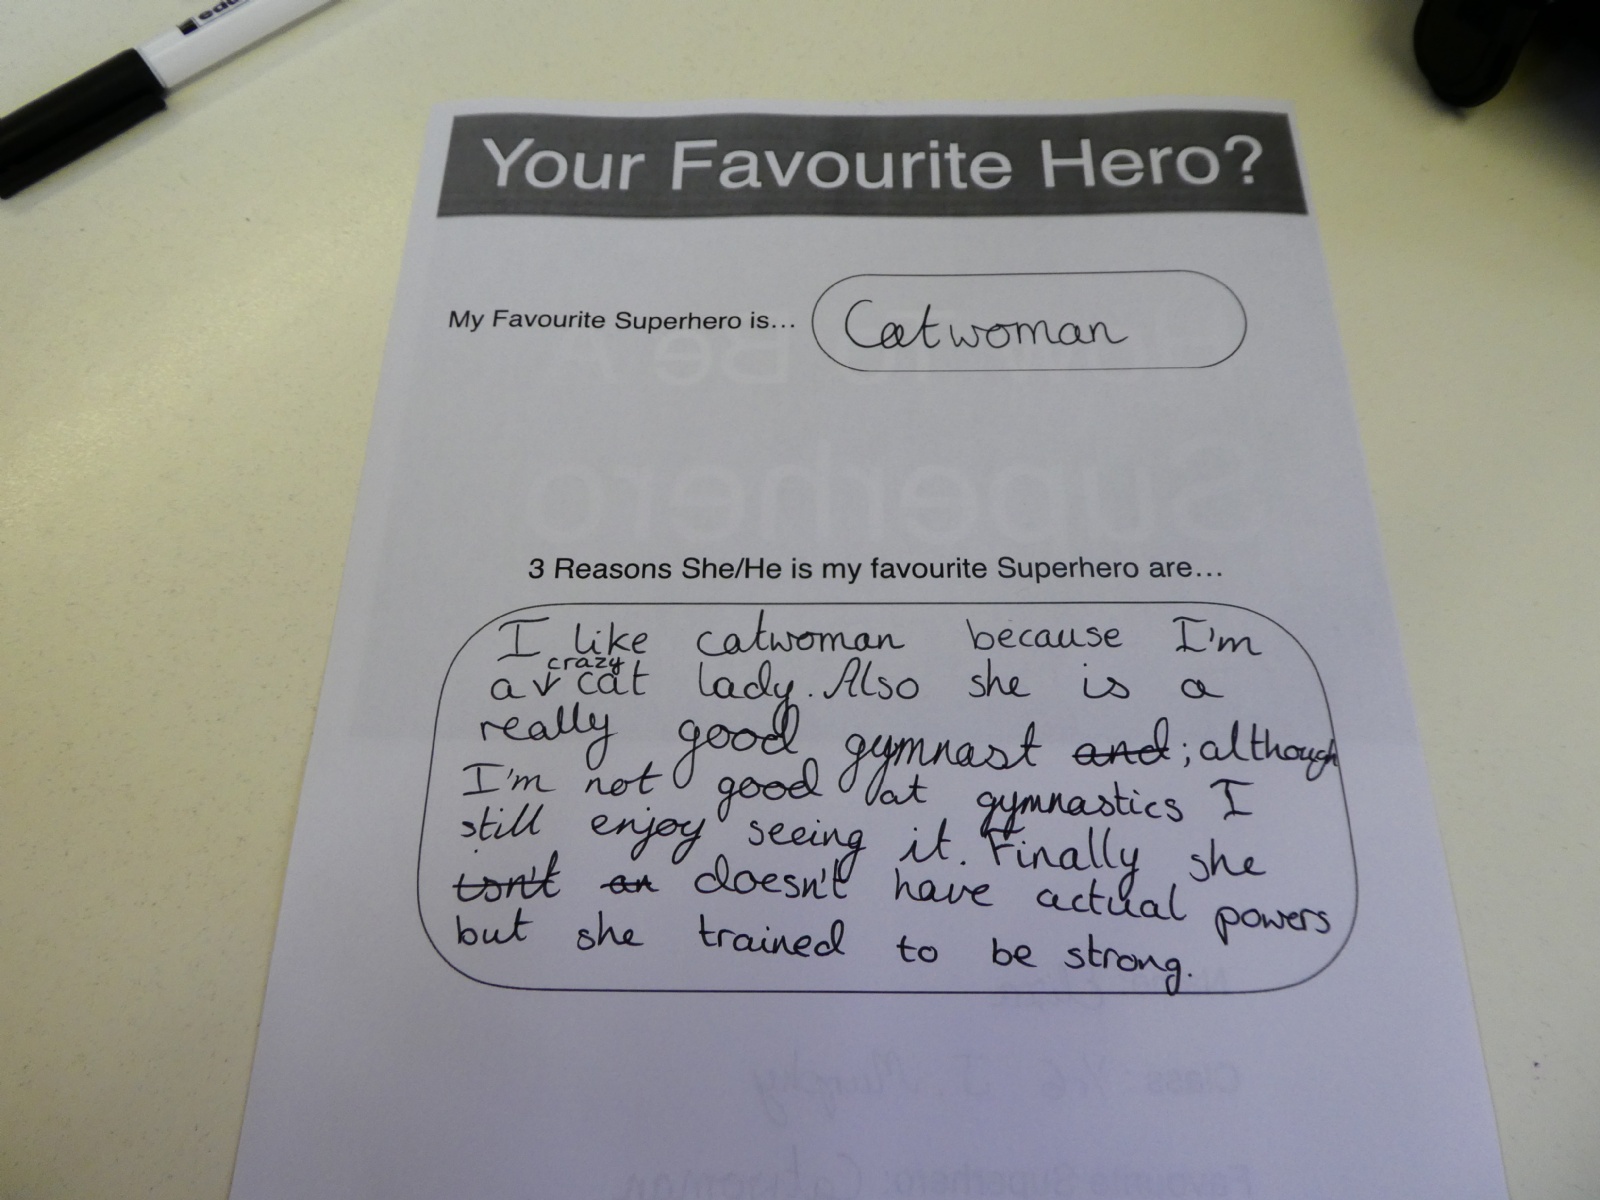 Your Favourite Hero?
My Favourite Superhero is...
Catwoman
3 Reasons She/He is my favourite Superhero are...
I like catwoman because I'm
a crazy cat lady. Also she is a
really good gymnast and; although
I'm not good at gymnastics I
still enjoy seeing it. Finally she
isn't an doesn't have actual powers
but she trained to be strong.